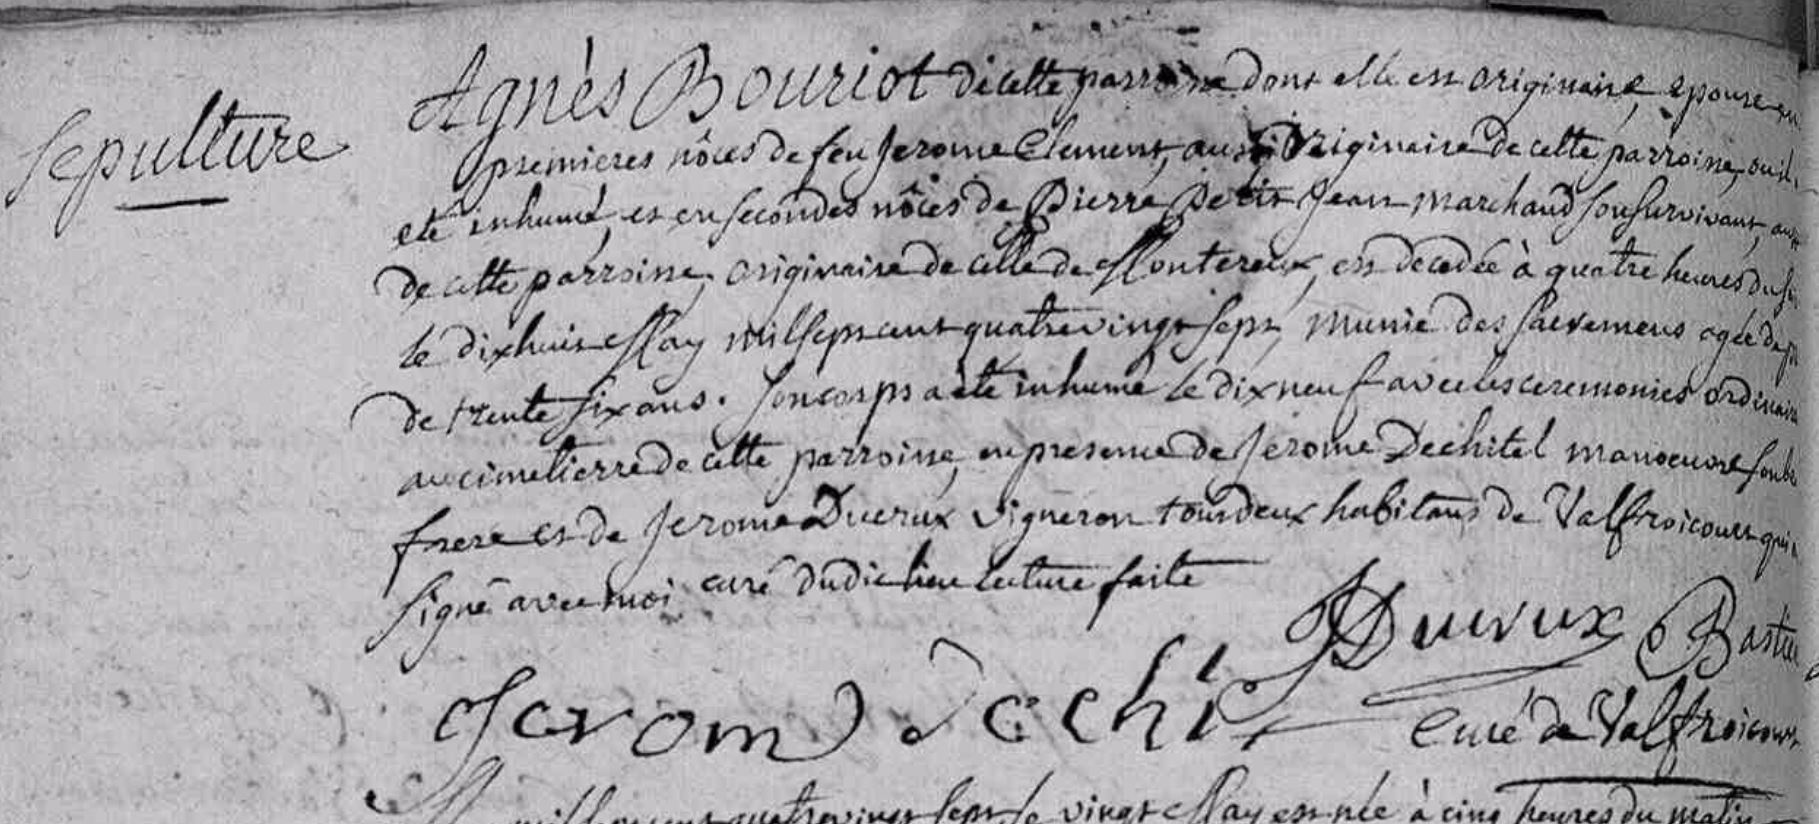 Sepulture
Agnès Bouriot de cette parroisse dont elle est originaire, epouse en
premieres nôces de feu Jerome Clement, aussi Originaire de cette parroisse, où il a
eté inhumé, et en secondes nôces de Pierre Petit Jean marchand son survivant, aussi
de cette parroisse, originaire de celle de Montereux, est decedeé à quatre heures du
le dixhuit May mil sept cent quatre vingt sept, munie des sacremens ageé de
de trente six ans. son corps a eté inhumé le dix neuf avec les ceremonies ordinaires
au cimetierre de cette parroisse, en presence de Jerome Dechitel manoeuvre son
frere et de Jerome Ducrux vigneron tous deux habitans de Valfroicourt qui
signé avec moi curé dudit lieu lecture faite
JDucrux Bastien
Jerom dechi curé de Valfroicourt
mil sept cent quatre vingt sept le vingt May est née à cinq heures du matin